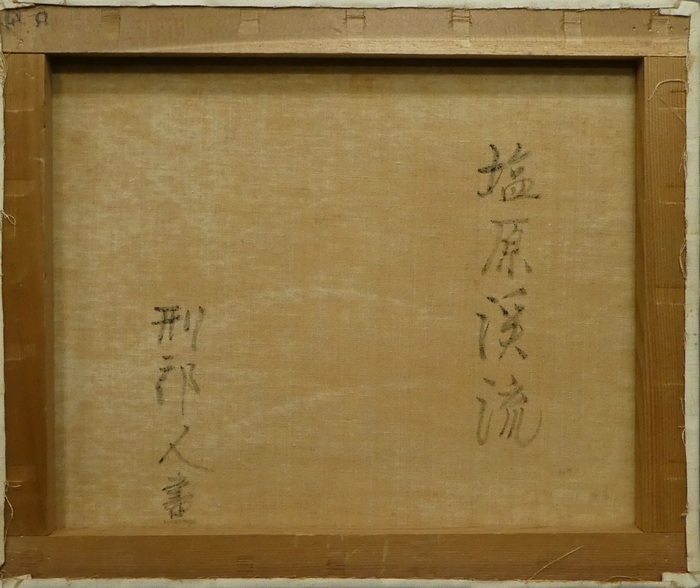 塩原渓流
刑部人畫